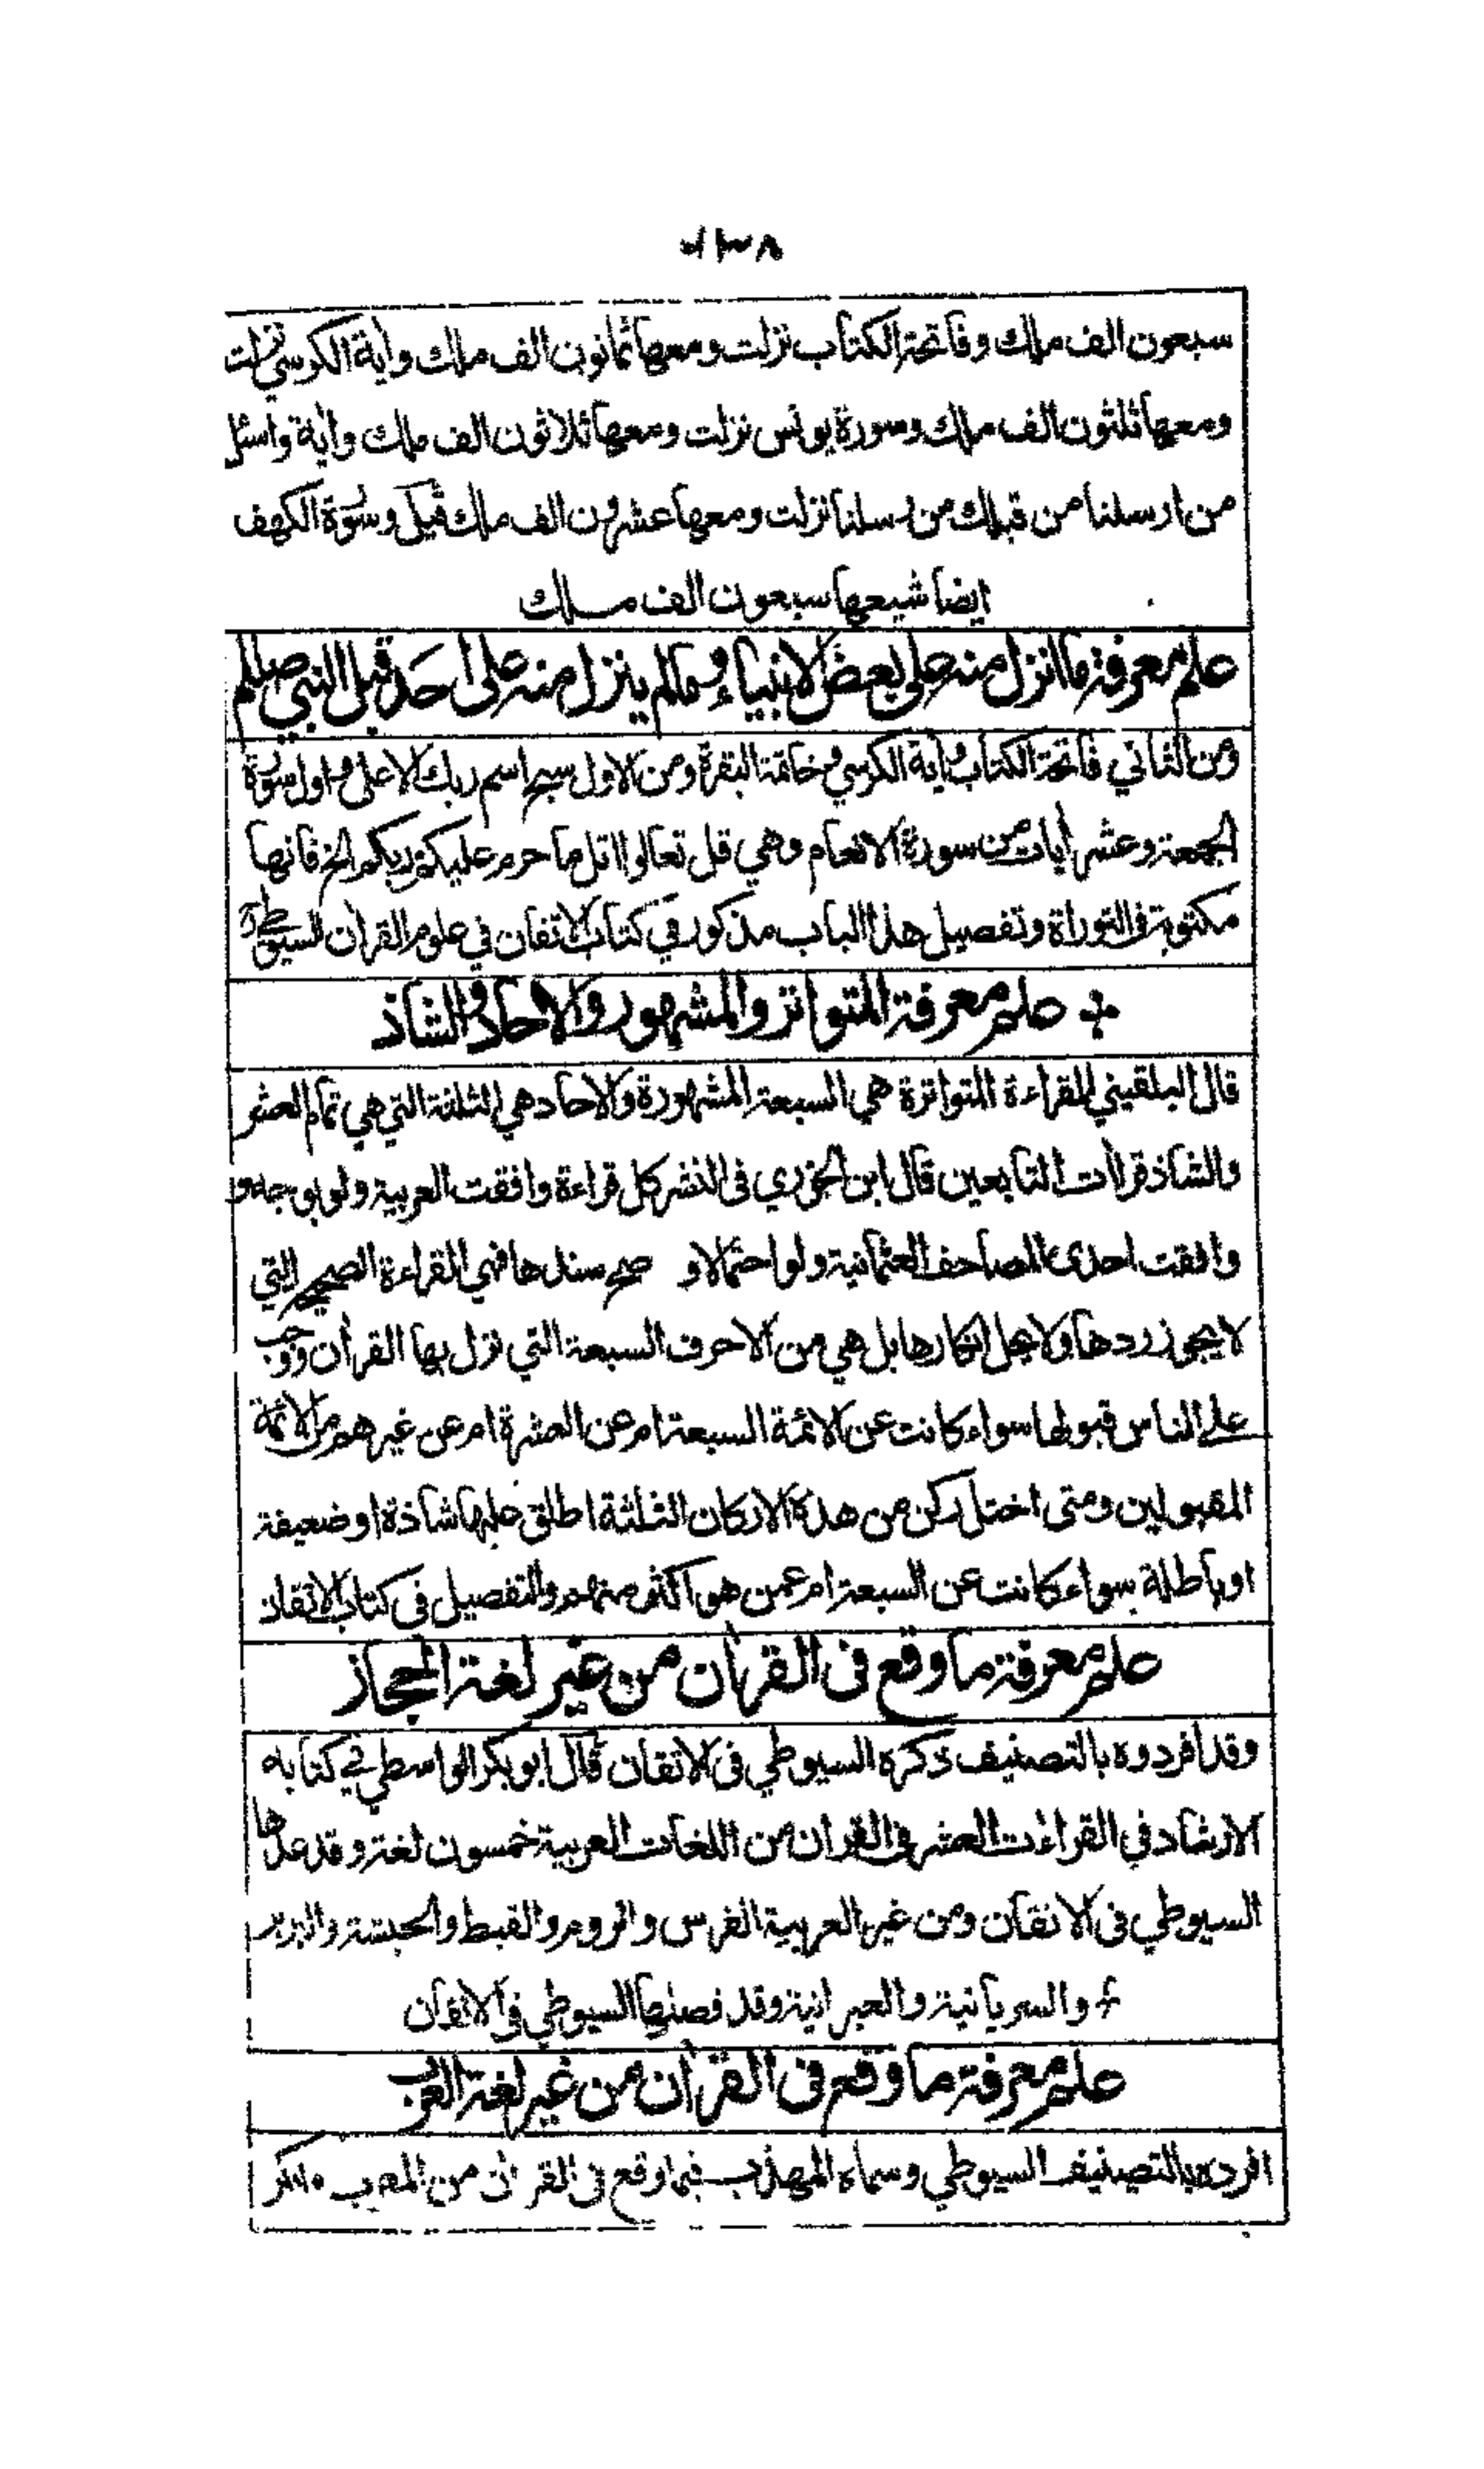 سبعون الف ملك وفاتحة الكتاب نزلت ومعها ثمانون الف ملك واية الكرسي نزلت
ومعها ثلثون الف ملك وسورة يونس نزلت ومعها ثلاثون الف ملك واية واسئل
من ارسلنا من قبلك من رسلنا نزلت ومعها عشرون الف ملك قيل وسورة الكهف
ايضا شيعها سبعون الف ملك
علم معرفة ما انزل منه على بعض الانبياء وما لم ينزل منه على احد قبل النبي صللم
ومن الثاني فاتحة الكتاب واية الكرسي وخاتمة البقرة ومن الاول سبح اسم ربك الاعلى واول سورة
الجمعة وعشر أيات من سورة الانعام وهي قل تعالوا اتل ما حرم عليكم ربكم الخ فانها
مكتوبة فى التوراة وتفصيل هذا الباب مذكور في كتاب الاتقان في علوم القرأن للسيوطي
علم معرفة المتواتر والمشهور والاحاد والشاذ
قال البلقيني القراءة المتواترة هي السبعة المشهورة والاحاد هي الثلثة التي هي تمام العشر
والشاذ قرأات التابعين قال ابن الجزري فى النشر كل قراءة وافقت العربية ولو بوجه و
وافقت احدى المصاحف العثمانية ولو احتمالا و صح سندها فهي القراءة الصحيحة التي
لا يجوز ردها ولا يحل انكارها بل هي من الاحرف السبعة التي نزل بها القرأن ووجب
على الناس قبولها سواء كانت عن الائمة السبعة ام عن العشرة ام عن غيرهم من الائمة
المقبولين ومتى اختل ركن من هذه الاركان الثلثة اطلق عليها شاذة او ضعيفة
او باطلة سواء كانت عن السبعة ام عمن هو اكثر منهم والتفصيل فى كتاب الاتقان
علم معرفة ما وقع فى القرأن من غير لغة الحجاز
وقد افردوه بالتصنيف ذكره السيوطي فى الاتقان قال ابو بكر الواسطي في كتابه
الارشاد في القراءت العشر فى القرأن من اللغات العربية خمسون لغة وقد عدها
السيوطي فى الاتقان ومن غير العربية الفرس والروم والقبط والحبشة والبربر
والسريانية والعبرانية وقد فصلها السيوطي فى الاتقان
علم معرفة ما وقع فى القرأن من غير لغة العرب
افرده بالتصنيف السيوطي وسماه المهذب فيما وقع فى القرأن من المعرب